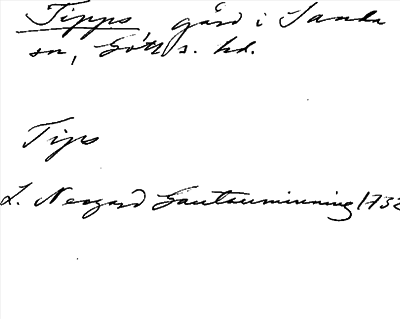 Tipps gård i Sanda
sn, Gotl. s. hd.
Tips
L. Nergard Gautauminning 1732